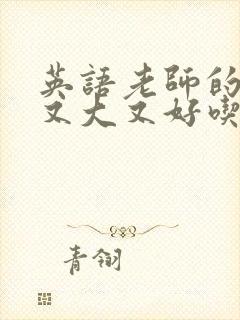 英語老師的
又大又好喫
青翎